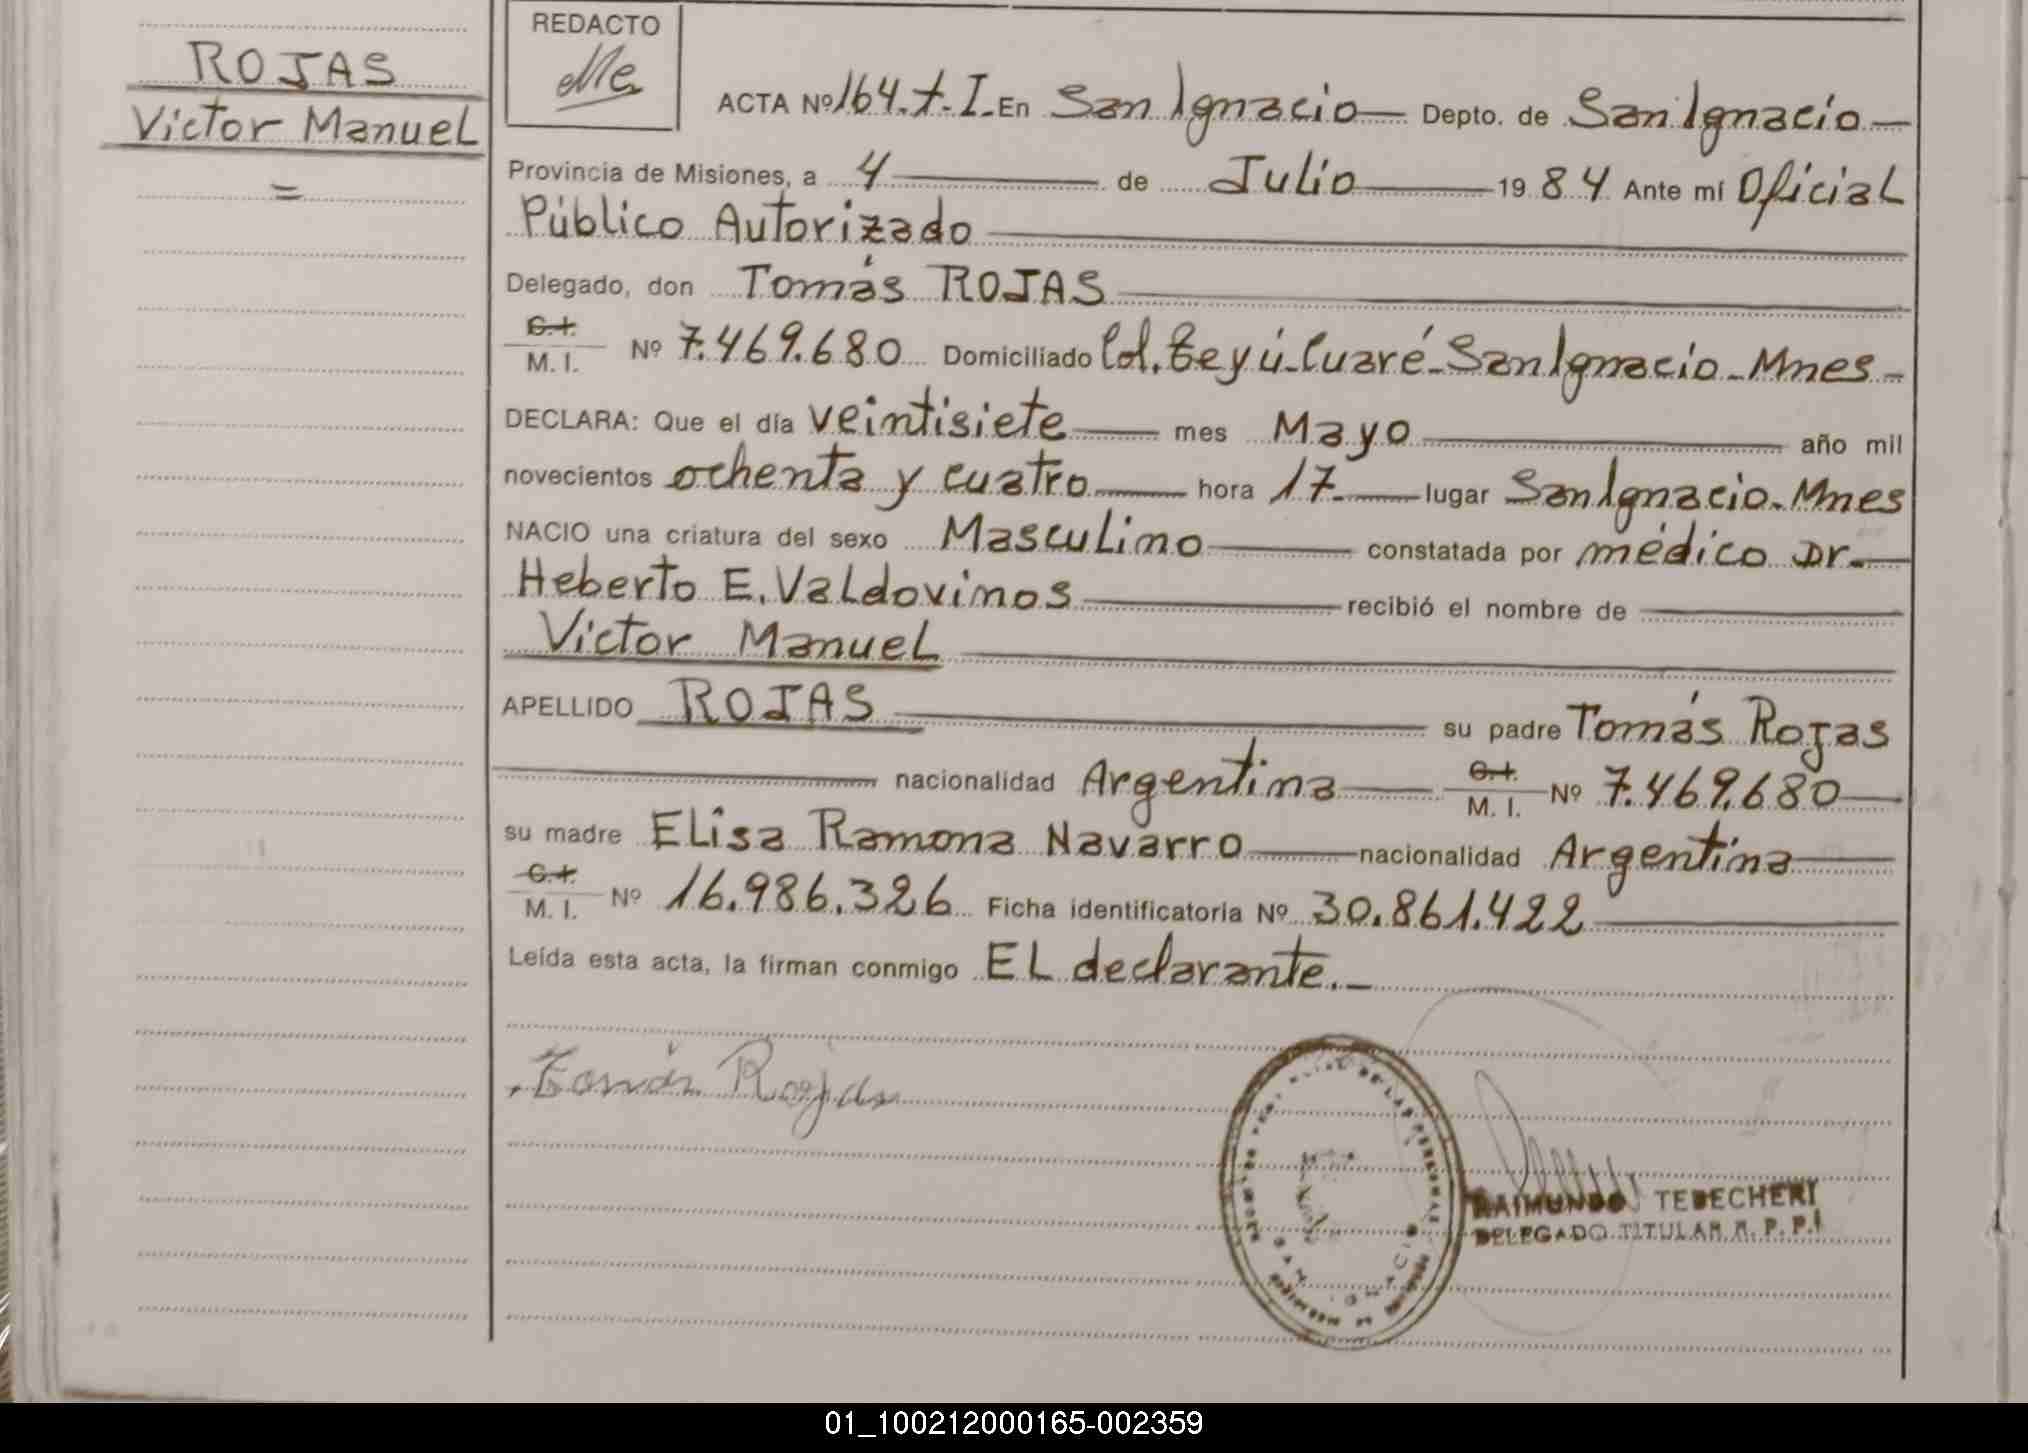 ROJAS
Victor Manuel
=
REDACTO
ACTA Nº 164.t.I. En San Ignacio Depto. de San Ignacio
Provincia de Misiones, a 4 de Julio 1984 Ante mí Oficial
Público Autorizado
Delegado, don Tomás ROJAS
C.I.
M. I. Nº 7.469.680 Domiciliado Col. Teyú-Cuaré-San Ignacio-Mnes-
DECLARA: Que el día veintisiete mes Mayo año mil
novecientos ochenta y cuatro hora 17 lugar San Ignacio-Mnes
NACIO una criatura del sexo Masculino constatada por médico Dr.
Heberto E. Valdovinos recibió el nombre de
Victor Manuel
APELLIDO ROJAS su padre Tomás Rojas
nacionalidad Argentina C.I. M. I. Nº 7.469.680
su madre Elisa Ramona Navarro nacionalidad Argentina
C.I.
M. I. Nº 16.986.326 Ficha identificatoria Nº 30.861.422
Leída esta acta, la firman conmigo El declarante.-
Tomás Rojas
RAIMUNDO TEDECHERI
DELEGADO TITULAR R. P. P.
01_100212000165-002359